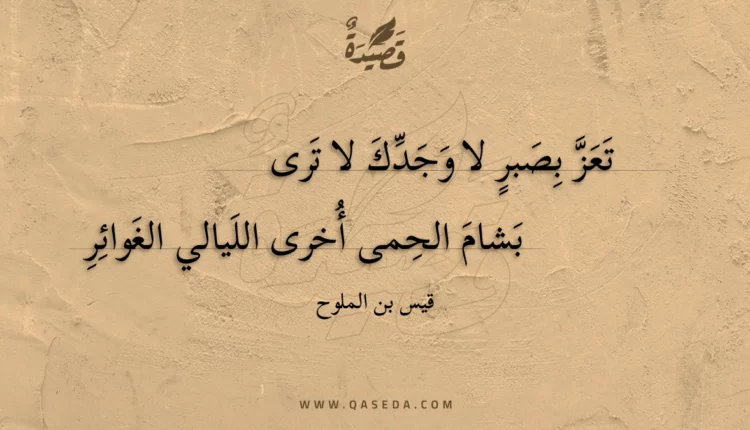 قَصِيدَةٌ
تَعَزَّ بِصَبرٍ لا وَجَدِّكَ لا تَرى
بَشامَ الحِمى أُخرى اللَيالي الغَوائِرِ
قيس بن الملوح
WWW.QASEDA.COM